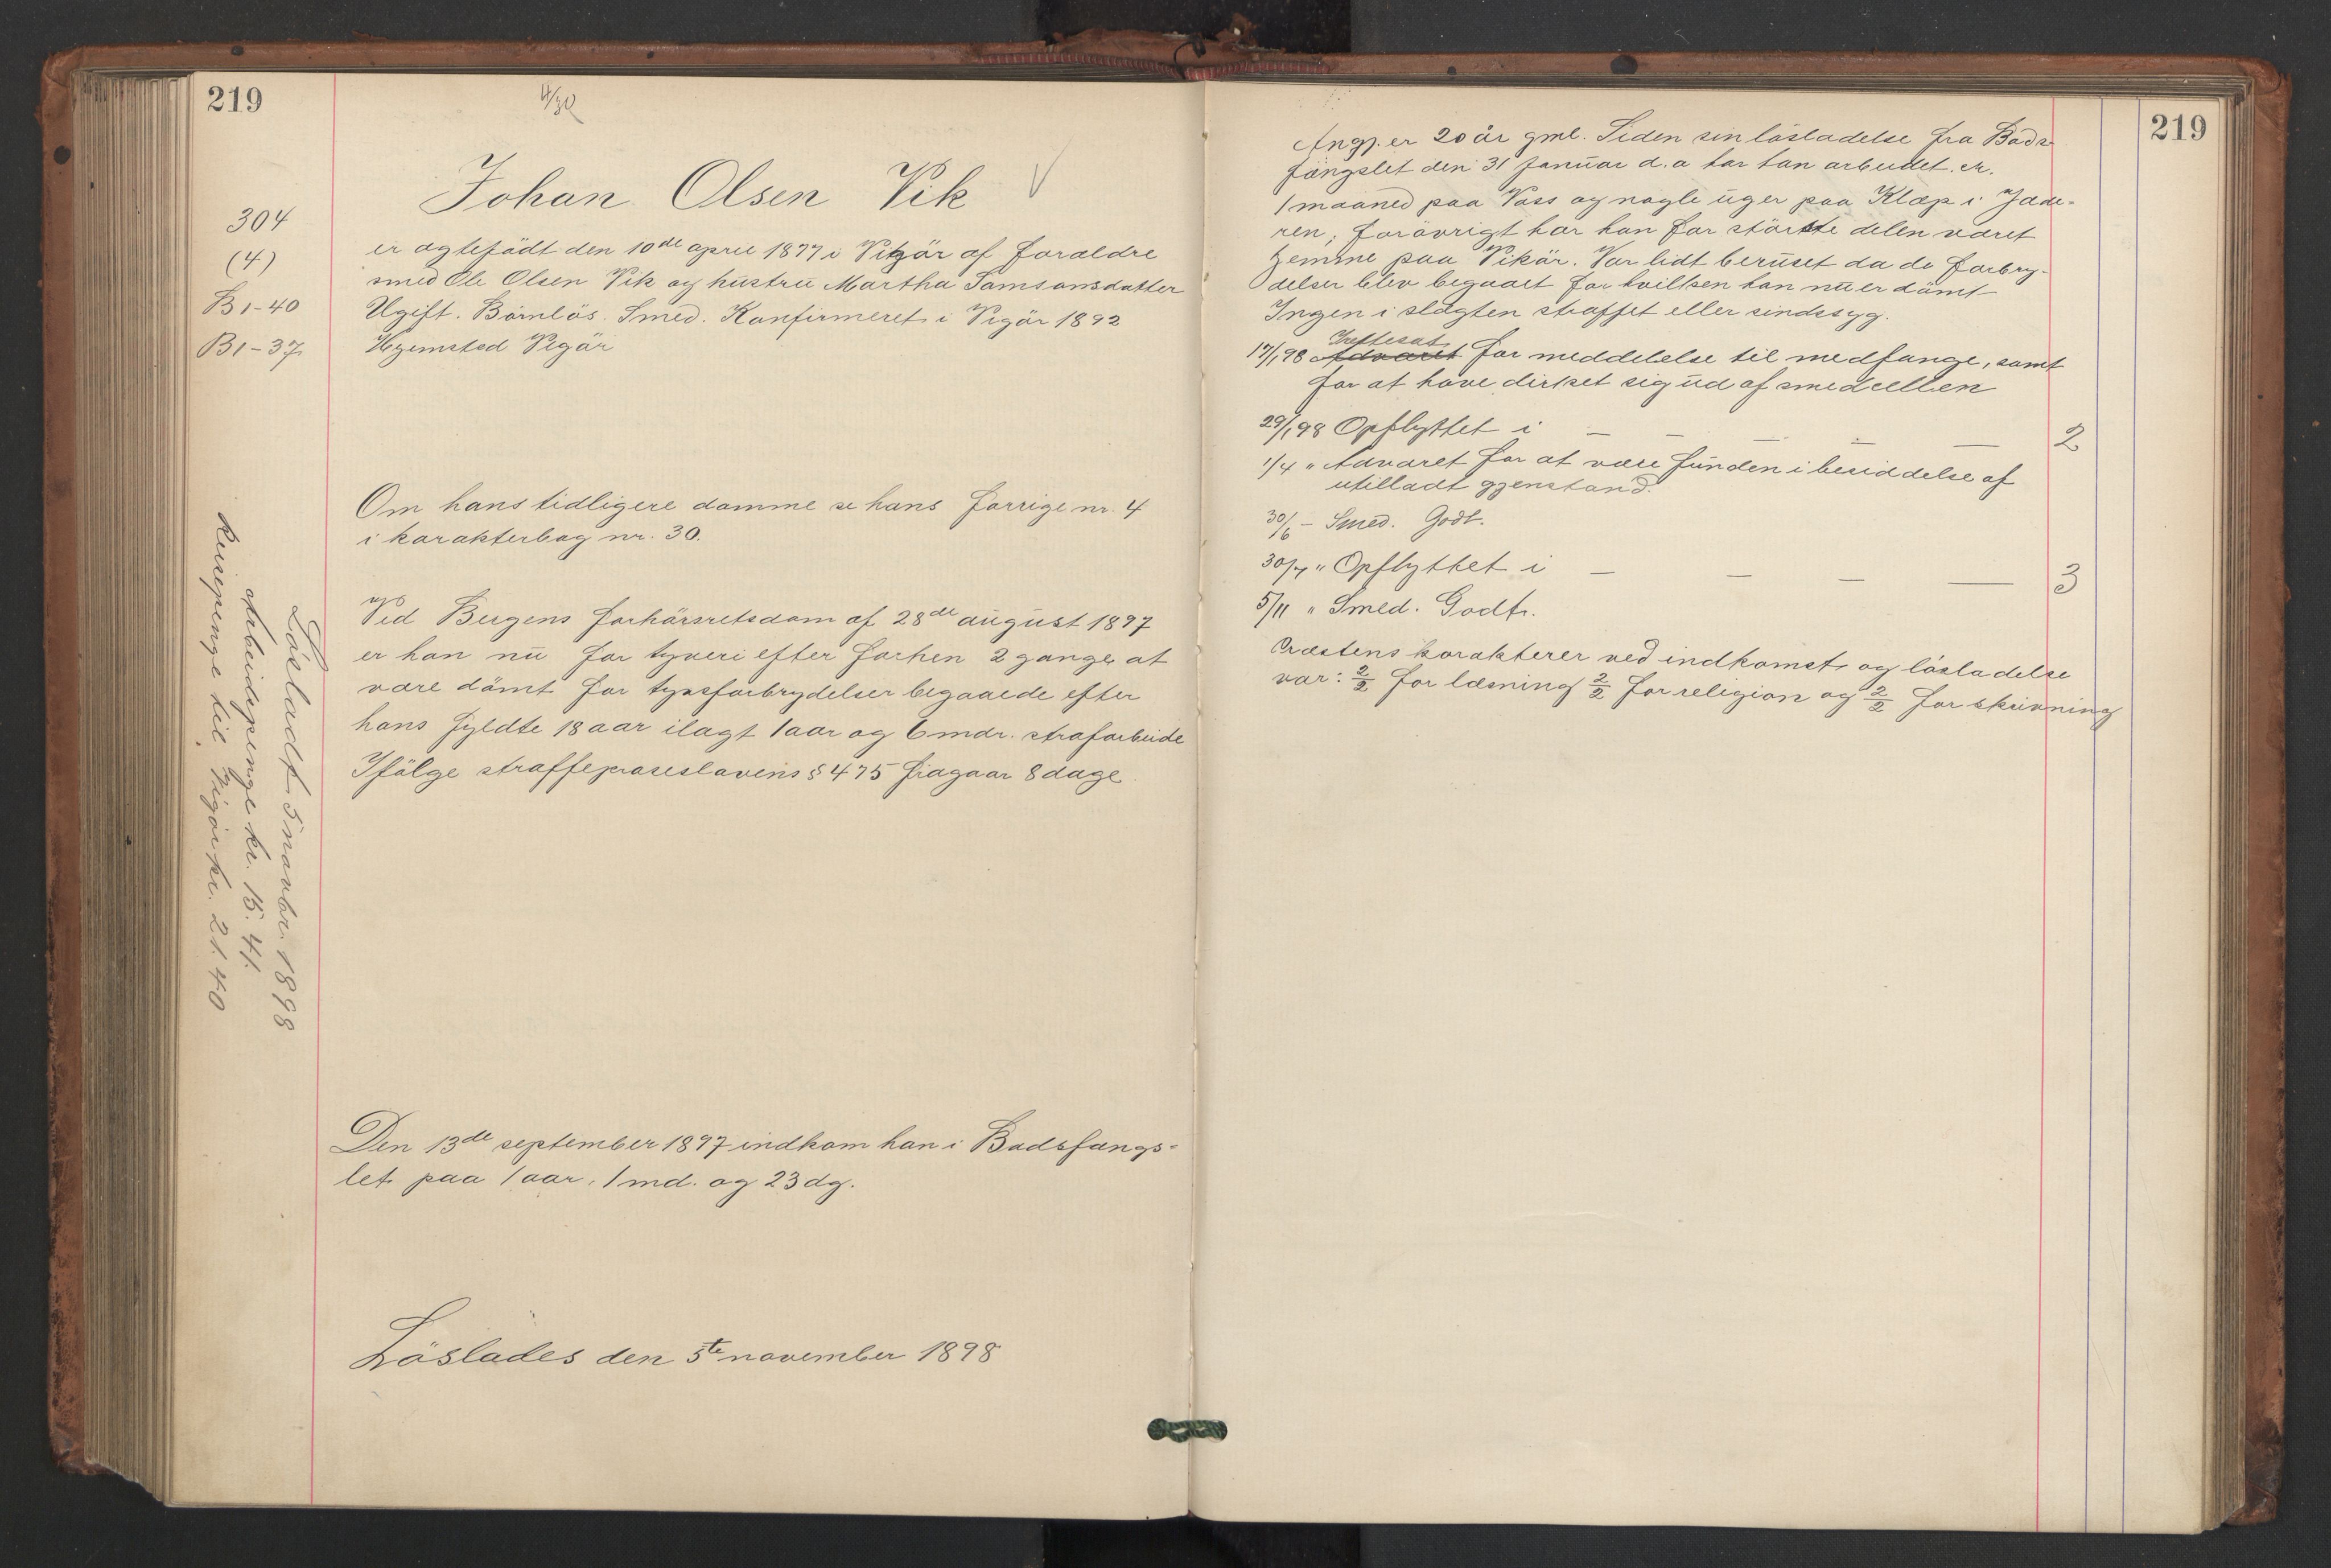 219
4/30
Johan Olsen Vik
304
(4)
B1-40
B1-37
er ægtefødt den 10de april 1877 i Vikør af forældre
smed Ole Olsen Vik og hustru Martha Samsonsdatter
Ugift. Børnløs. Smed. Konfirmeret i Vigør 1892
Hjemsted Vigør
Om hans tidligere domme se hans forrige nr. 4
i karakterbog nr. 30.
Ved Bergens forhørsretsdom af 28de august 1897
er han nu for tyveri efter forhen 2 gange at
være dømt for tyvsforbrydelser begaaede efter
hans fyldte 18 aar ilagt 1 aar og 6 mdr. strafarbeide
Ifølge straffeproseslovens § 475 fragaar 8 dage.
Løsladt 5 novbr. 1898
Arbeidspenge kr. 15.41.
Reisepenge til Vigør kr. 21.40
Den 13de september 1897 indkom han i Bodsfængs-
let paa 1 aar, 1 md. og 23 dg.
Løslades den 5te november 1898
219
Angj. er 20 år gml. Siden sin løsladelse fra Bods-
fængslet den 31 januar d.a har han arbeidet ca.
1 maaned paa Voss og nogle uger paa Klæp i Jæde-
ren; forøvrigt har han for største delen været
hjemme paa Vikør. Var lidt beruset da de forbry-
delser blev begaaet for hvilken han nu er dømt
Ingen i slægten straffet eller sindssyg.
Irettesat
17/1 98 Advaret for meddelelse til medfange, samt
for at have dirket sig ud af smedcellen
29/1 98 Opflyttet i — — — — — 2
1/4 " Advaret for at være funden i besiddelse af
utilladt gjenstand.
30/6 – Smed. Godt.
30/7 " Opflyttet i — — — — 3
5/11 " Smed. Godt.
Præstens karakterer ved indkomst og løsladelse
var: 2/2 for læsning 2/2 for religion og 2/2 for skrivning